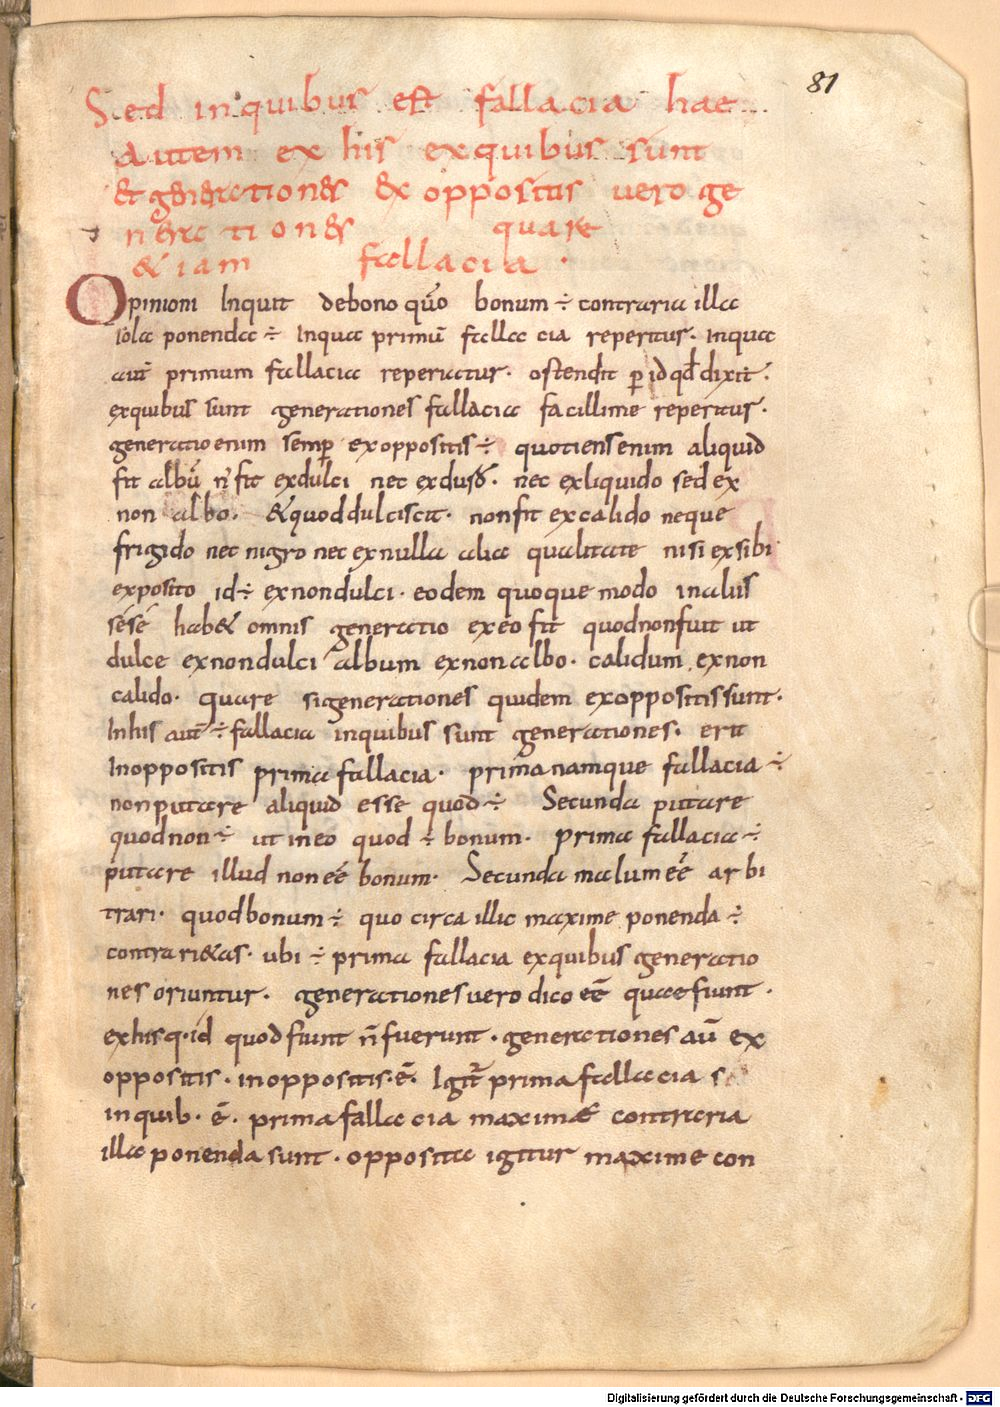 81
Sed in quibus est fallacia hae
autem ex his ex quibus sunt
& generation&s ex oppositis vero ge
neration&s quare
& iam fallacia ·
Opinioni Inquit de bono quō bonum ÷ contraria illa
ponenda ÷ Inqua primū fallacia reperitur. Inqua
aut̄ primum fallacia reperiatur. ostendit ꝑ id qđ dixit.
exquibus sunt generationes fallacia facillime reperitur.
generatio enim semꝑ ex oppositis ÷ quotiens enim aliquid
fit albū n̄ fit exdulci nec ex nec ex liquido sed ex
non albo. & quod dulciscit. non fit ex calido neque
frigido nec nigro nec ex nulla alia qualitate nisi ex sibi
exposito id ÷ ex non dulci. eodem quoque modo in aliis
sese hab& omnis generatio ex eo fit quod non fuit ut
dulce ex non dulci album ex non albo. calidum ex non
calido. quare si generationes quidem ex oppositis sunt.
In his aut̄ ÷ fallacia in quibus sunt generationes. erit
In oppositis prima fallacia. prima namque fallacia ÷
non putare aliquid esse quod ÷ Secunda putare
quod non ÷ ut in eo quod ÷ bonum. prima fallacia ÷
putare illud non eē bonum. Secunda malum eē arbi
trari. quod bonum ÷ quo circa illic maxime ponenda ÷
contrari&as. ubi ÷ prima fallacia ex quibus generatio
nes oriuntur. generationes vero dico eē quae fiunt.
ex his q. id quod fiunt n̄ fuerunt. generationes aū ex
oppositis. in oppositis. ē. Igit̄ prima fallacia s
in quib. ē. prima fallacia maximae contraria
illa ponenda sunt. opposita igitur maxime con
Digitalisierung gefördert durch die Deutsche Forschungsgemeinschaft - DFG